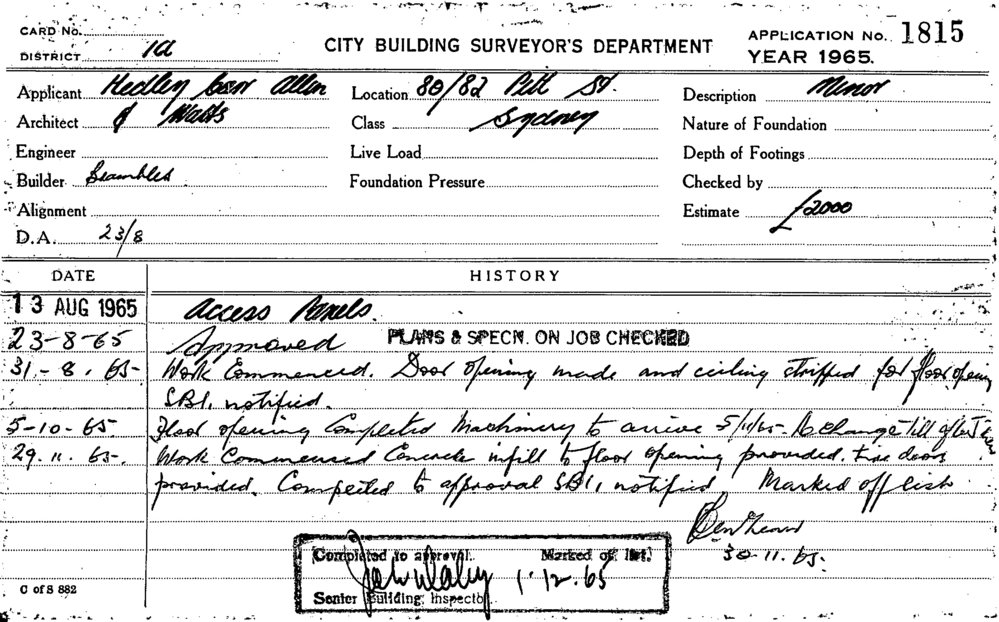 CARD No.
DISTRICT 1a
CITY BUILDING SURVEYOR'S DEPARTMENT
APPLICATION No. 1815
YEAR 1965.
Applicant Hedley Carr Allen
Location 80/82 Pitt St.
Description Minor
Architect & Watts
Class Sydney
Nature of Foundation
Engineer
Live Load
Depth of Footings
Builder Brambles
Foundation Pressure
Checked by
Alignment
Estimate £2000
D.A. 23/8
DATE HISTORY
13 AUG 1965 Access Panels.
23-8-65 Approved PLANS & SPECN. ON JOB CHECKED
31-8.65- Work Commenced. Door opening made and ceiling stripped for floor opening
SBI, notified.
5-10-65- Floor opening Completed Machinery to arrive 5/11/65- No change till after
29.11.65-. Work Commenced Concrete infill to floor opening provided. Fire doors
provided. Completed to approval SBI, notified Marked off list
30-11.65-
Completed to approval. Marked off list.
1.12.65
Senior Building Inspector
C of S 882